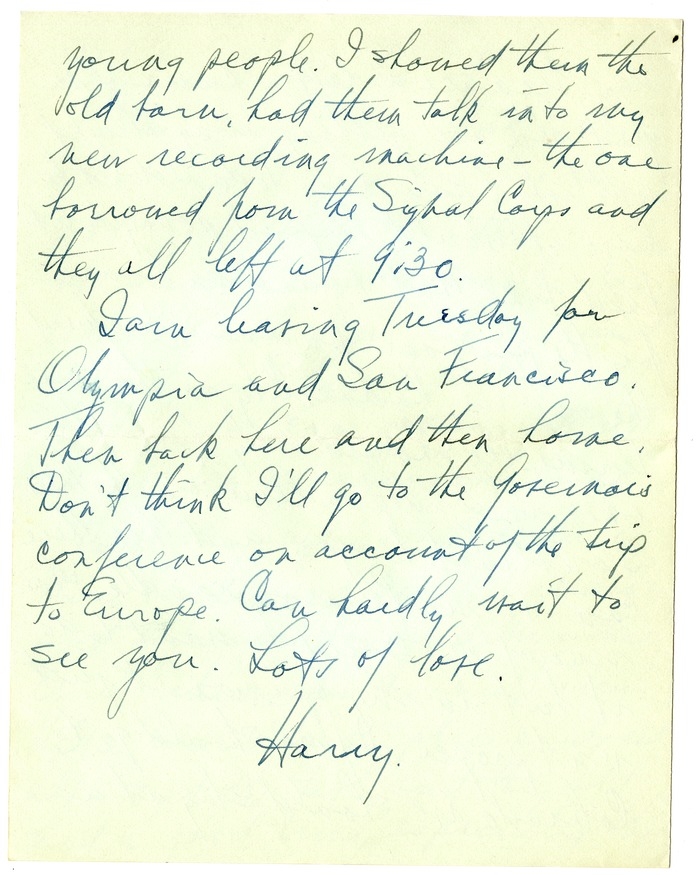 young people. I showed them the
old barn, had them talk in to my
new recording machine - the one
borrowed from the Signal Corps and
they all left at 9:30.
I am leaving Tuesday for
Olympia and San Francisco.
Then back here and then home.
Don't think I'll go to the Governors
conference on account of the trip
to Europe. Can hardly wait to
see you. Lots of love.
Harry.